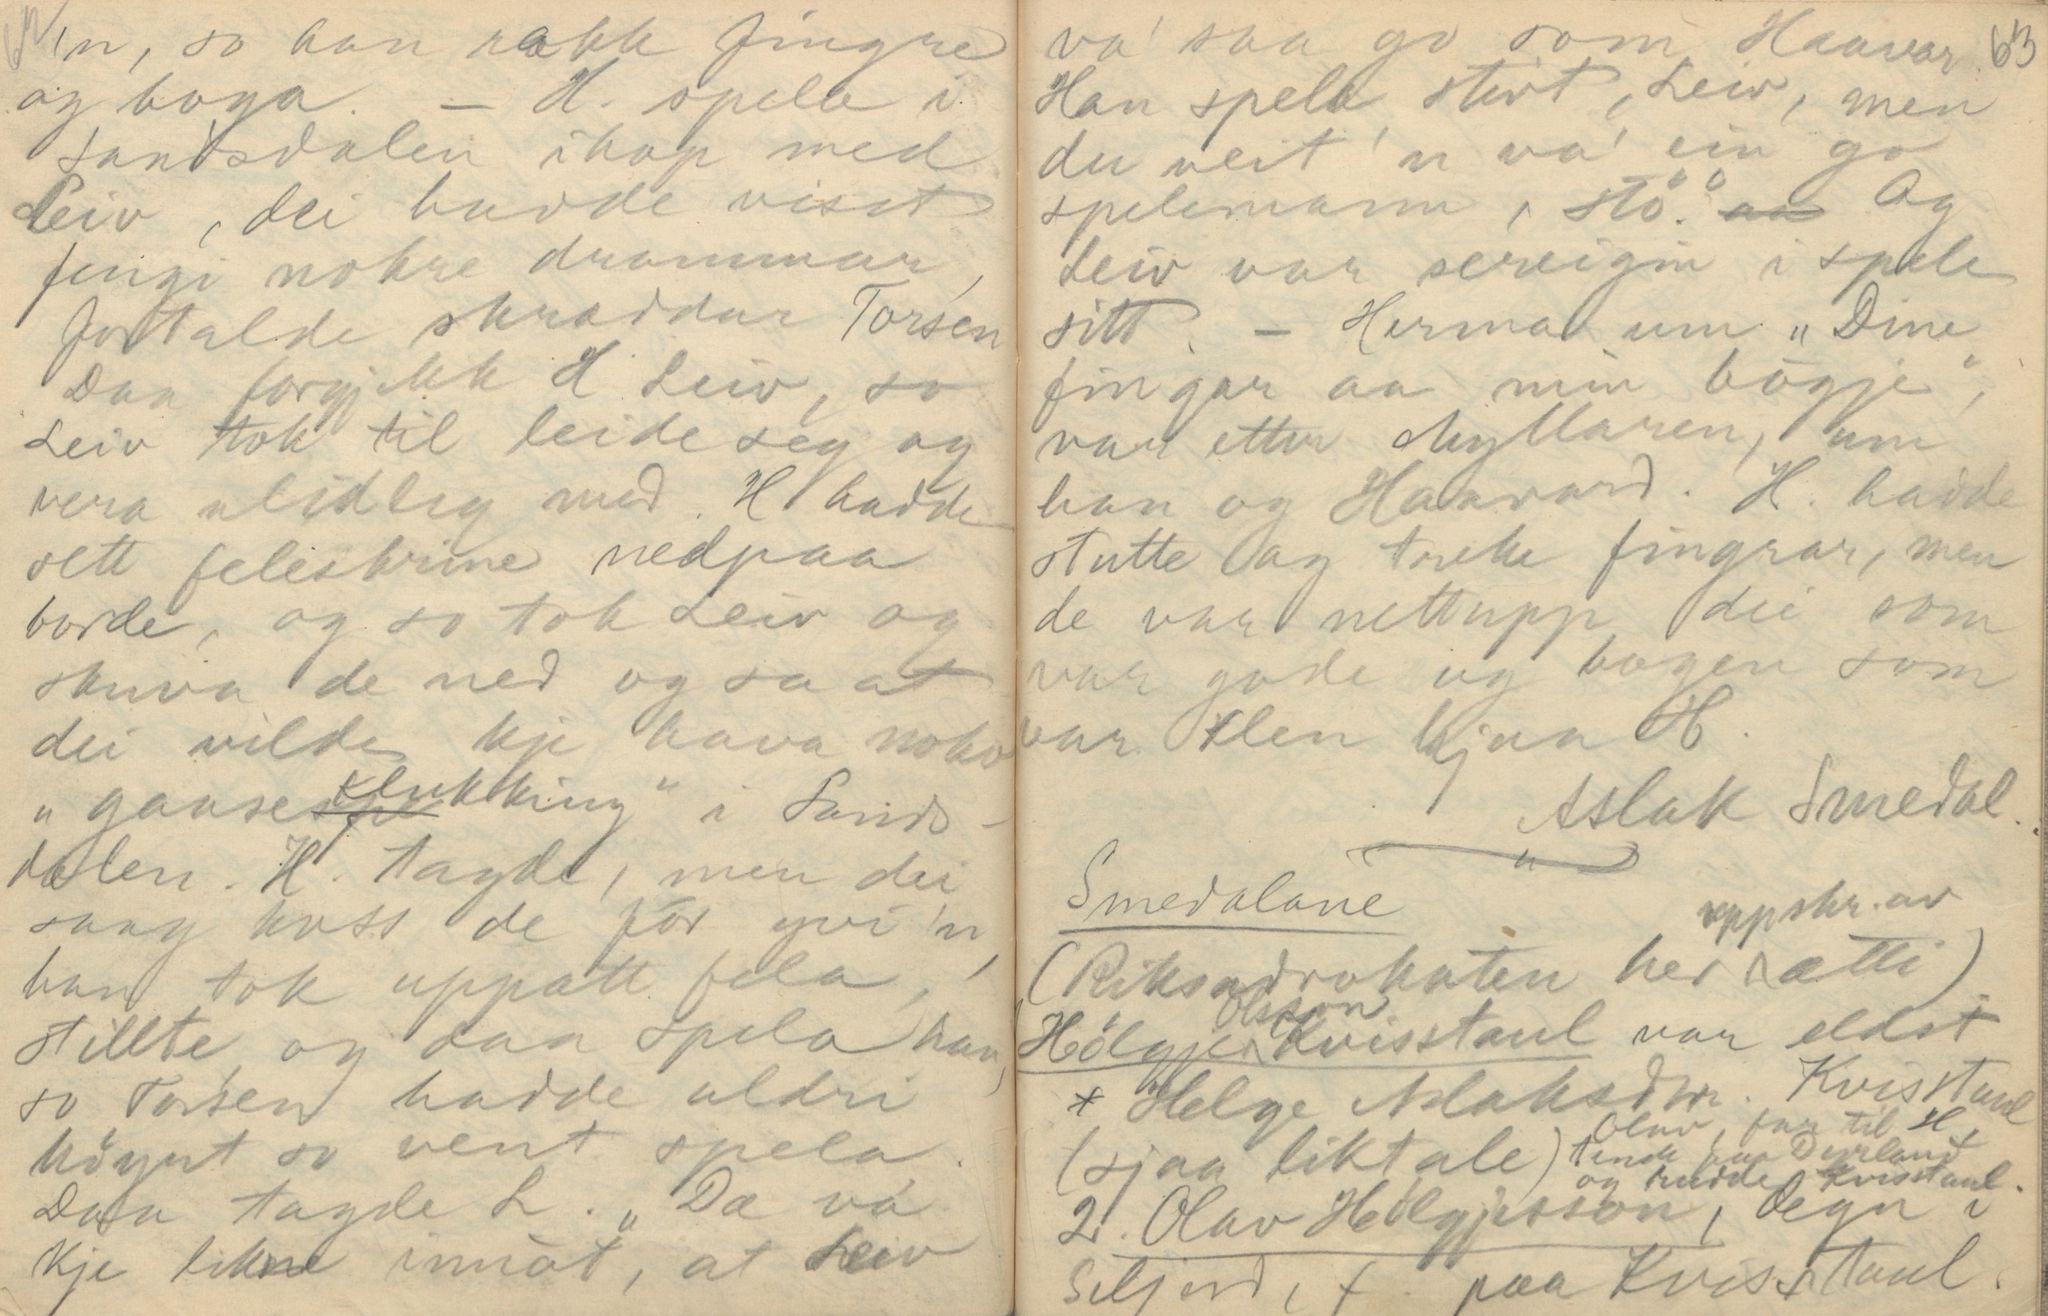 'n, so han rakk fingre
og boga. — H. spela i
Sandsdalen ihop med
Leiv, dei hadde visst
fengi nokre drammar,
fortalde skraddar Torsen
Daa forgjekk H Leiv, so
Leiv tok til leide seg og
vera ulidleg med. H hadde
sett feleskrine nedpaa
borde, og so tok Leiv og
skuva de ned og sa at
dei vilde kje hava noko
"gaaseklukking" i Sands-
dalen. H. tagde, men dei
saag koss de fór yvi 'n,
han tok uppatt fela,
stillte, og daa spela han,
so Torsen hadde aldri
höyrt so vent spela.
Daa tagde L. "Dæ va
kje likne imót, at Leiv
63
va' saa go som Haavar.
Han spela stirt, Leiv, men
du veit 'n va' ein go
spelemann, stö." Og
Leiv var sereigin i spele
sitt. — Herma um "Dine
fingar aa min bögje",
var etter Myllaren, um
han og Haavard. H. hadde
stutte og turke fingrar, men
de var nettupp dei som
var gode og bogen som
var klen hjaa H.
Aslak Smedal.
Smedalane
uppskr. av
(Riksadvokaten her ætti)
Olsson
Hölgje Kvisstaul var eldst
* Helge Aslakson. Kvisstaul
(sjaa liktale) Olav, far til H,
tente paa Dyrland
og rudde Kvisstaul.
2. Olav Hölgjesson, degn i
Seljord, f. paa Kvisstaul.